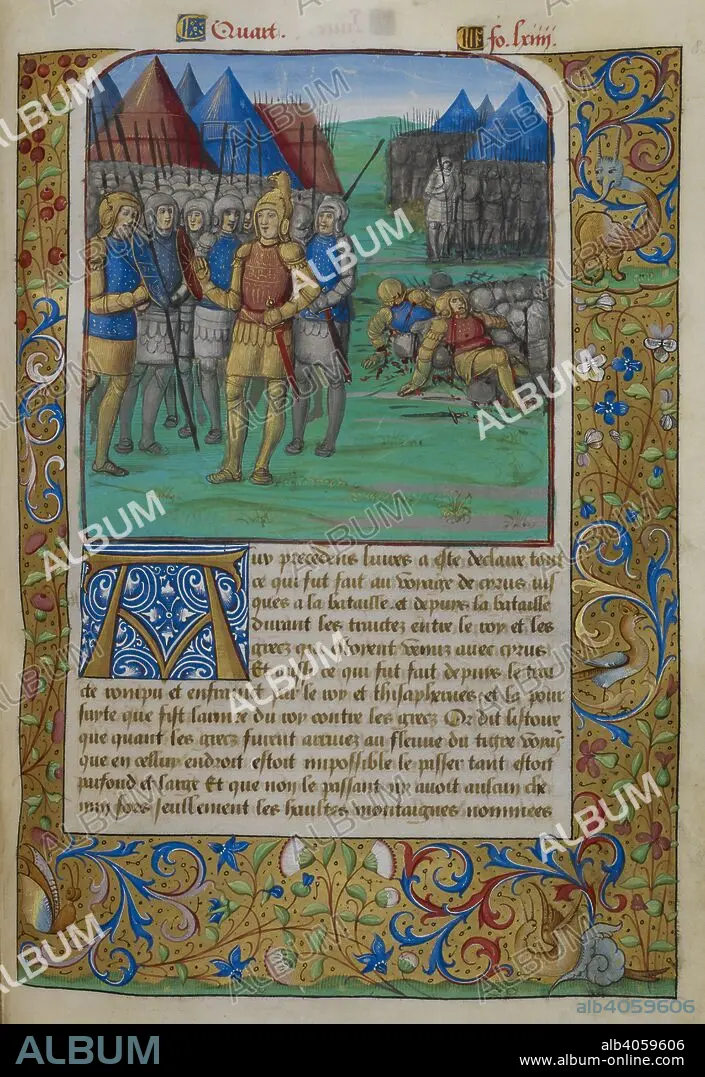 Quart. fo. lxiiii.
Auy precedens liures a este declaire tout
ce qui fut fait au voyage de cyrus ius
ques a la bataille et depuys la bataille
durant les traictez entre le roy et les
grecz qui estoyent venuz avec cyrus
Et ce qui fut fait depuys le trai
cte rompu et enfraint par le roy et thisaphernes et la pour
suyte que fist larmee du roy contre les grecz Or dit listoire
que quant les grecz furent arriuez au fleuue du tigre
que en celluy endroit estoit impossible le passer tant estoit
profond et large Et que non le passant ny auoit aulcun che
min fors seullement les haultes montaignes nommees
ALBUM
alb4059606
ALBUM
alb4059606
www.album-online.com